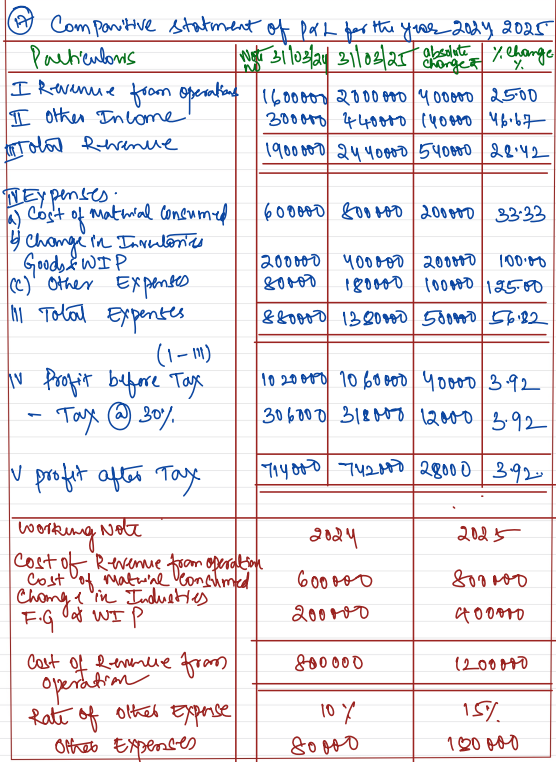 (A) Comparitive statement of P&L for the year 2024, 2025
Particulars Note No 31/03/24 31/03/25 absolute change ₹ % Change %
I Revenue from operations 1600000 2000000 400000 25.00
II Other Income 300000 440000 140000 46.67
III Total Revenue 1900000 2440000 540000 28.42
IV Expenses.
a) Cost of Material Consumed 600000 800000 200000 33.33
b) Change in Inventories
Goods & WIP 200000 400000 200000 100.00
(c) Other Expenses 80000 180000 100000 125.00
III Total Expenses 880000 1380000 500000 56.82
(I - III)
IV Profit before Tax 1020000 1060000 40000 3.92
- Tax @ 30% 306000 318000 12000 3.92
V profit after Tax 714000 742000 28000 3.92
Working Note 2024 2025
Cost of Revenue from operation
Cost of Material Consumed 600000 800000
Change in Industries
F.G of WIP 200000 400000
Cost of Revenue from 800000 1200000
operation
Rate of Other Expense 10% 15%
Other Expenses 80000 180000